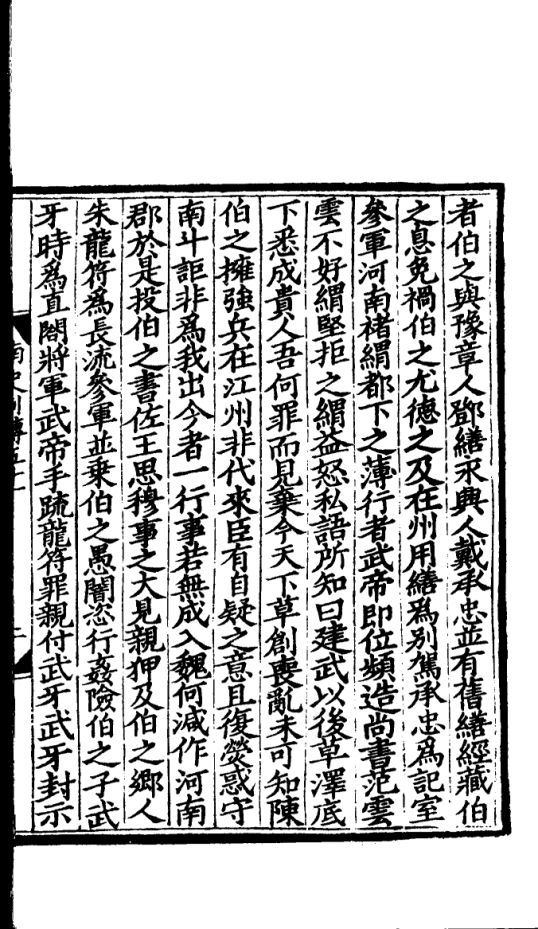 者伯之與豫章人鄧繕永興人戴承忠並有舊繕經藏伯
之息免禍伯之尤德之及在州用繕爲別駕承忠爲記室
參軍河南褚緭都下之薄行者武帝即位頻造尚書范雲
雲不好緭堅拒之緭益怒私語所知曰建武以後草澤底
下悉成貴人吾何罪而見棄今天下草創喪亂未可知陳
伯之擁強兵在江州非代來臣有自疑之意且復熒惑守
南斗詎非爲我出今者一行事若無成入魏何減作河南
郡於是投伯之書佐王思穆事之大見親狎及伯之鄉人
朱龍符爲長流參軍並乗伯之愚闇恣行姦險伯之子武
牙時爲直閤將軍武帝手疏龍符罪親付武牙武牙封示
南史列傳五十一